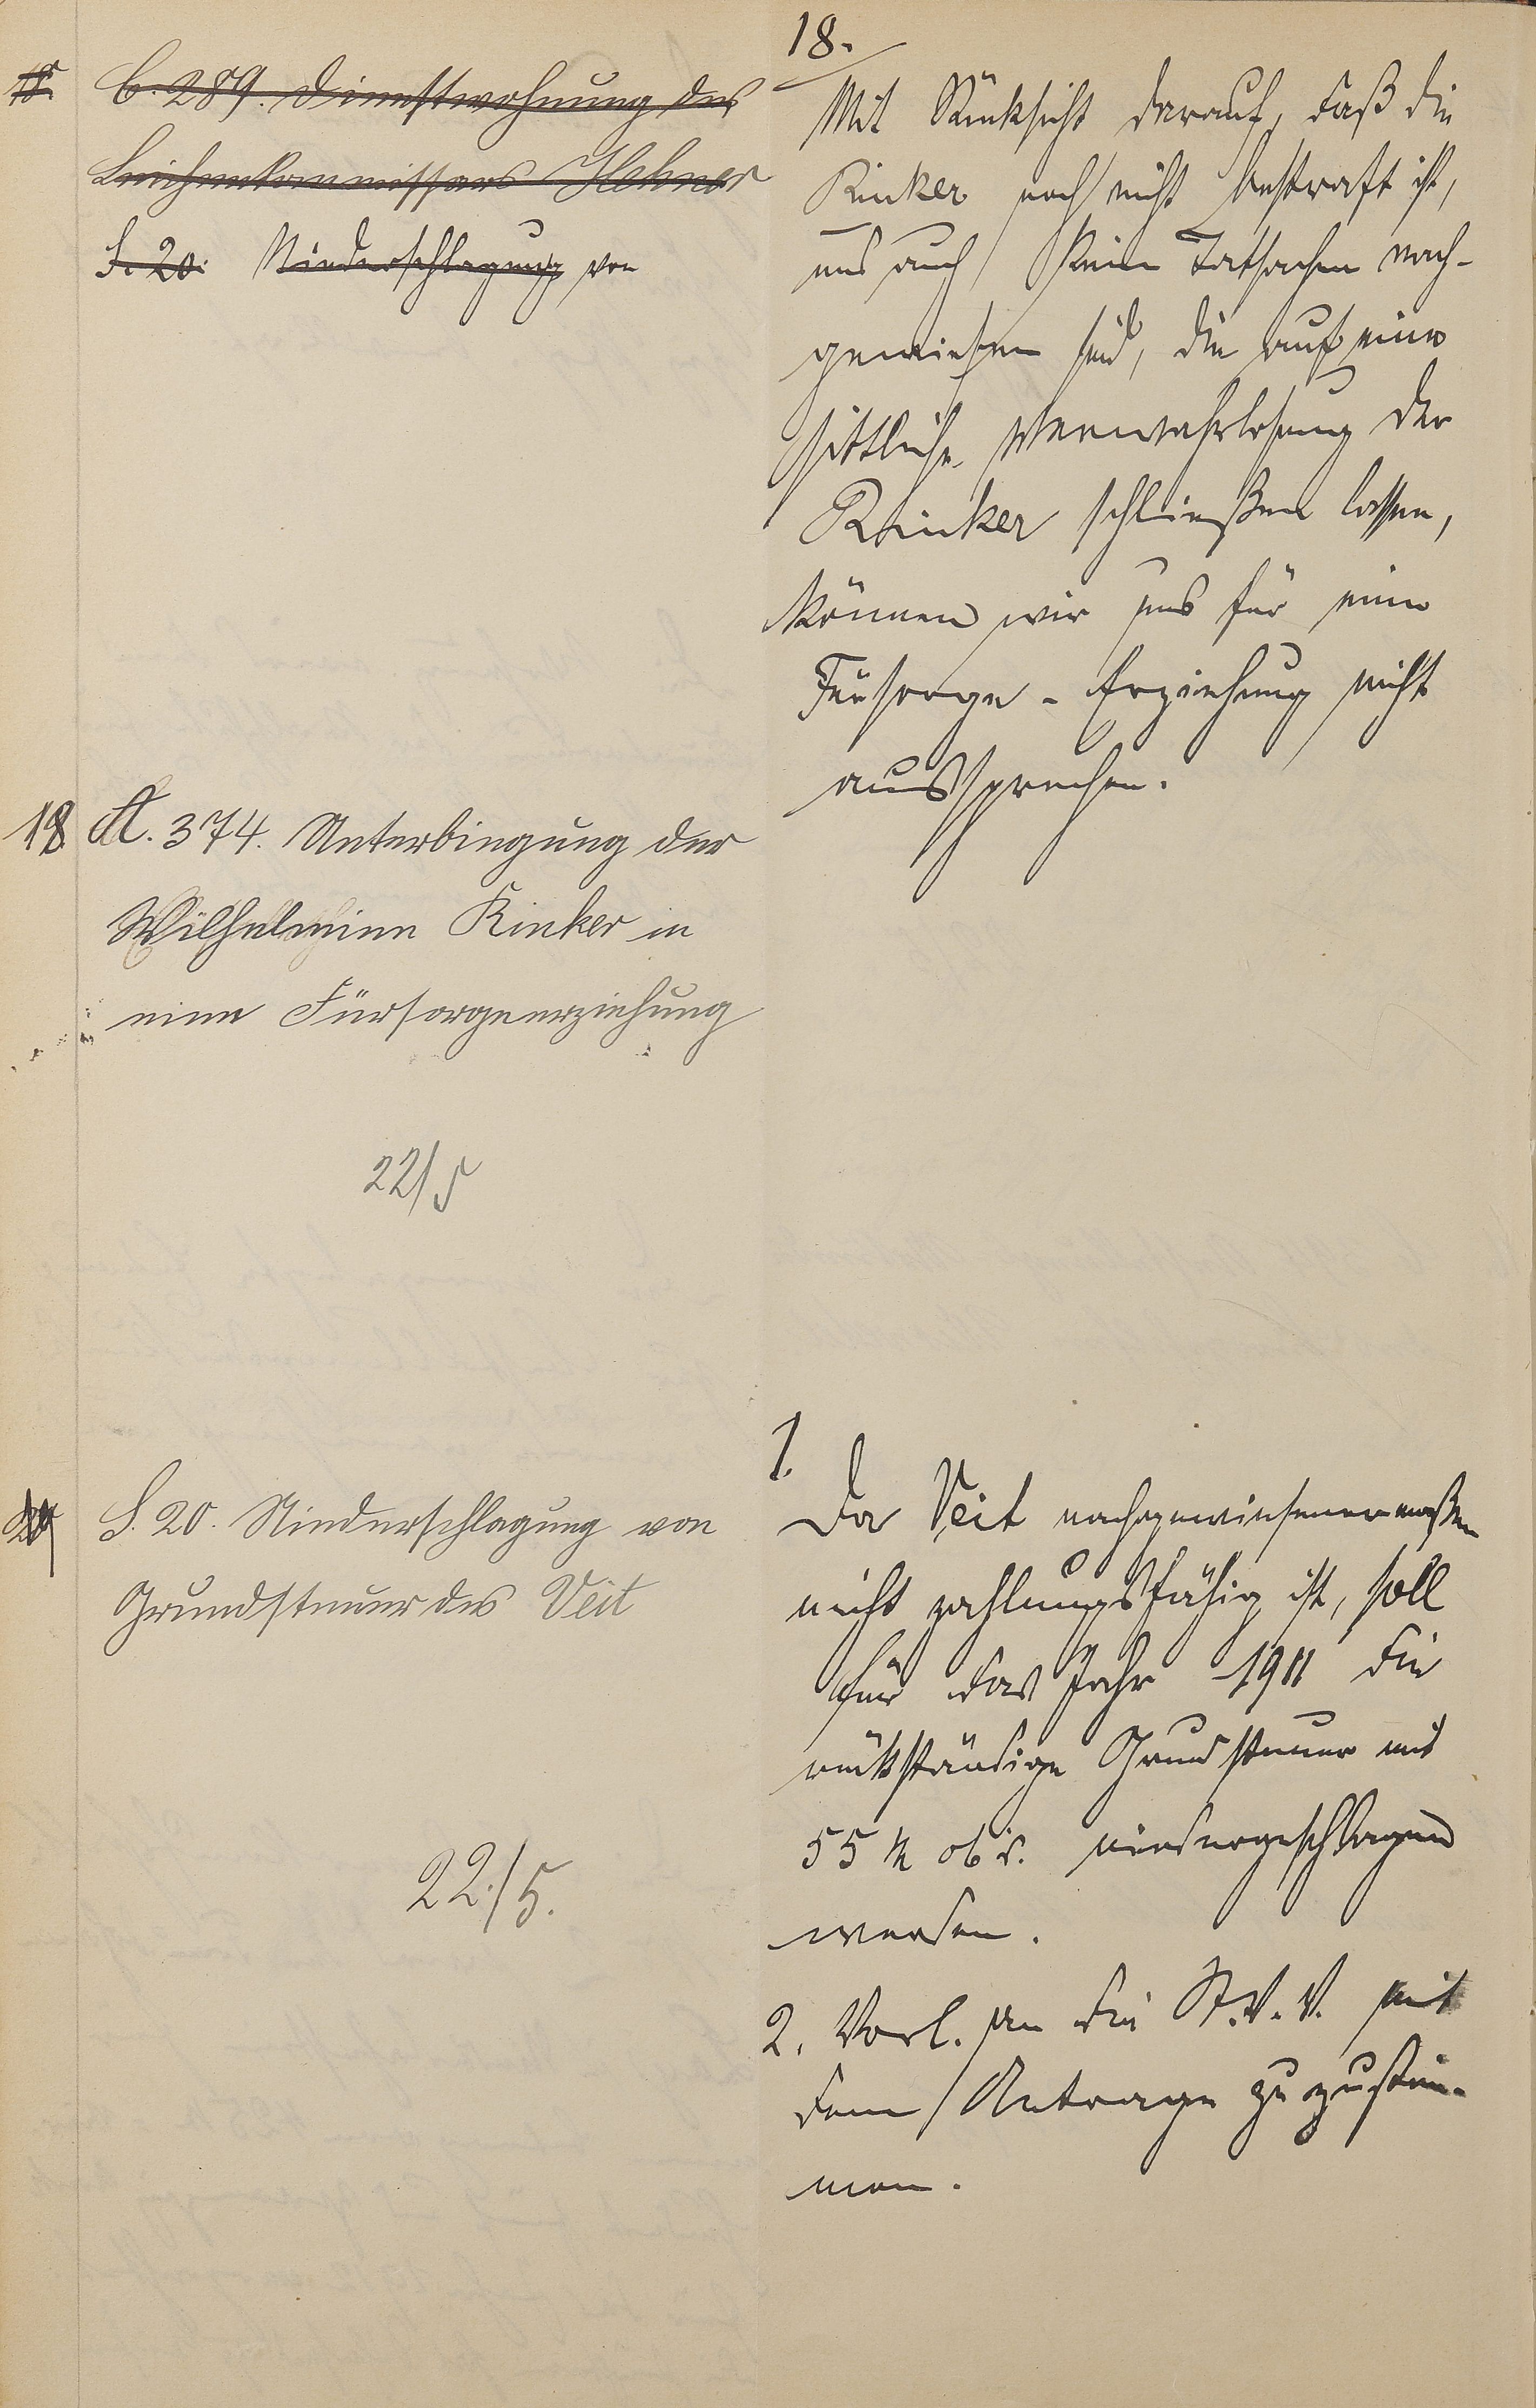 18.
C. 289. Dienstwohnung des
Leichenkommissars Hohner
S. 20. Niederschlagung von
18.
Mit Rücksicht darauf, daß die
Rinker noch nicht bestraft ist,
und auch keine Tatsachen nach-
gewiesen sind, die auf eine
sittliche Verwahrlosung der
Rinker schließen lassen,
können wir uns für eine
Fürsorge-Erziehung nicht
aussprechen.
18 A. 374. Unterbingung der
Wilhelmine Rinker in
eine Fürsorgeerziehung
22/5
19 S. 20. Niederschlagung von
Grundsteuer des Veit
22./5.
1.
Da Veit nachgewiesenermaßen
nicht zahlungsfähig ist, soll
für das Jahr 1911 die
rückständige Grundsteuer mit
55 M niedergeschlagen
werden.
2. Vorl. an die St. V. V. mit
dem Antrage zuzustim-
men.